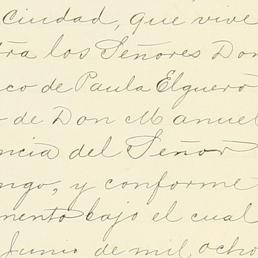 ciudad, que vive
tra los Señores Don
co de Paula Elguero
de Don Manuel
ncia del Señor
ngo, y conforme
mento bajo el cual
Junio de mil, ocho